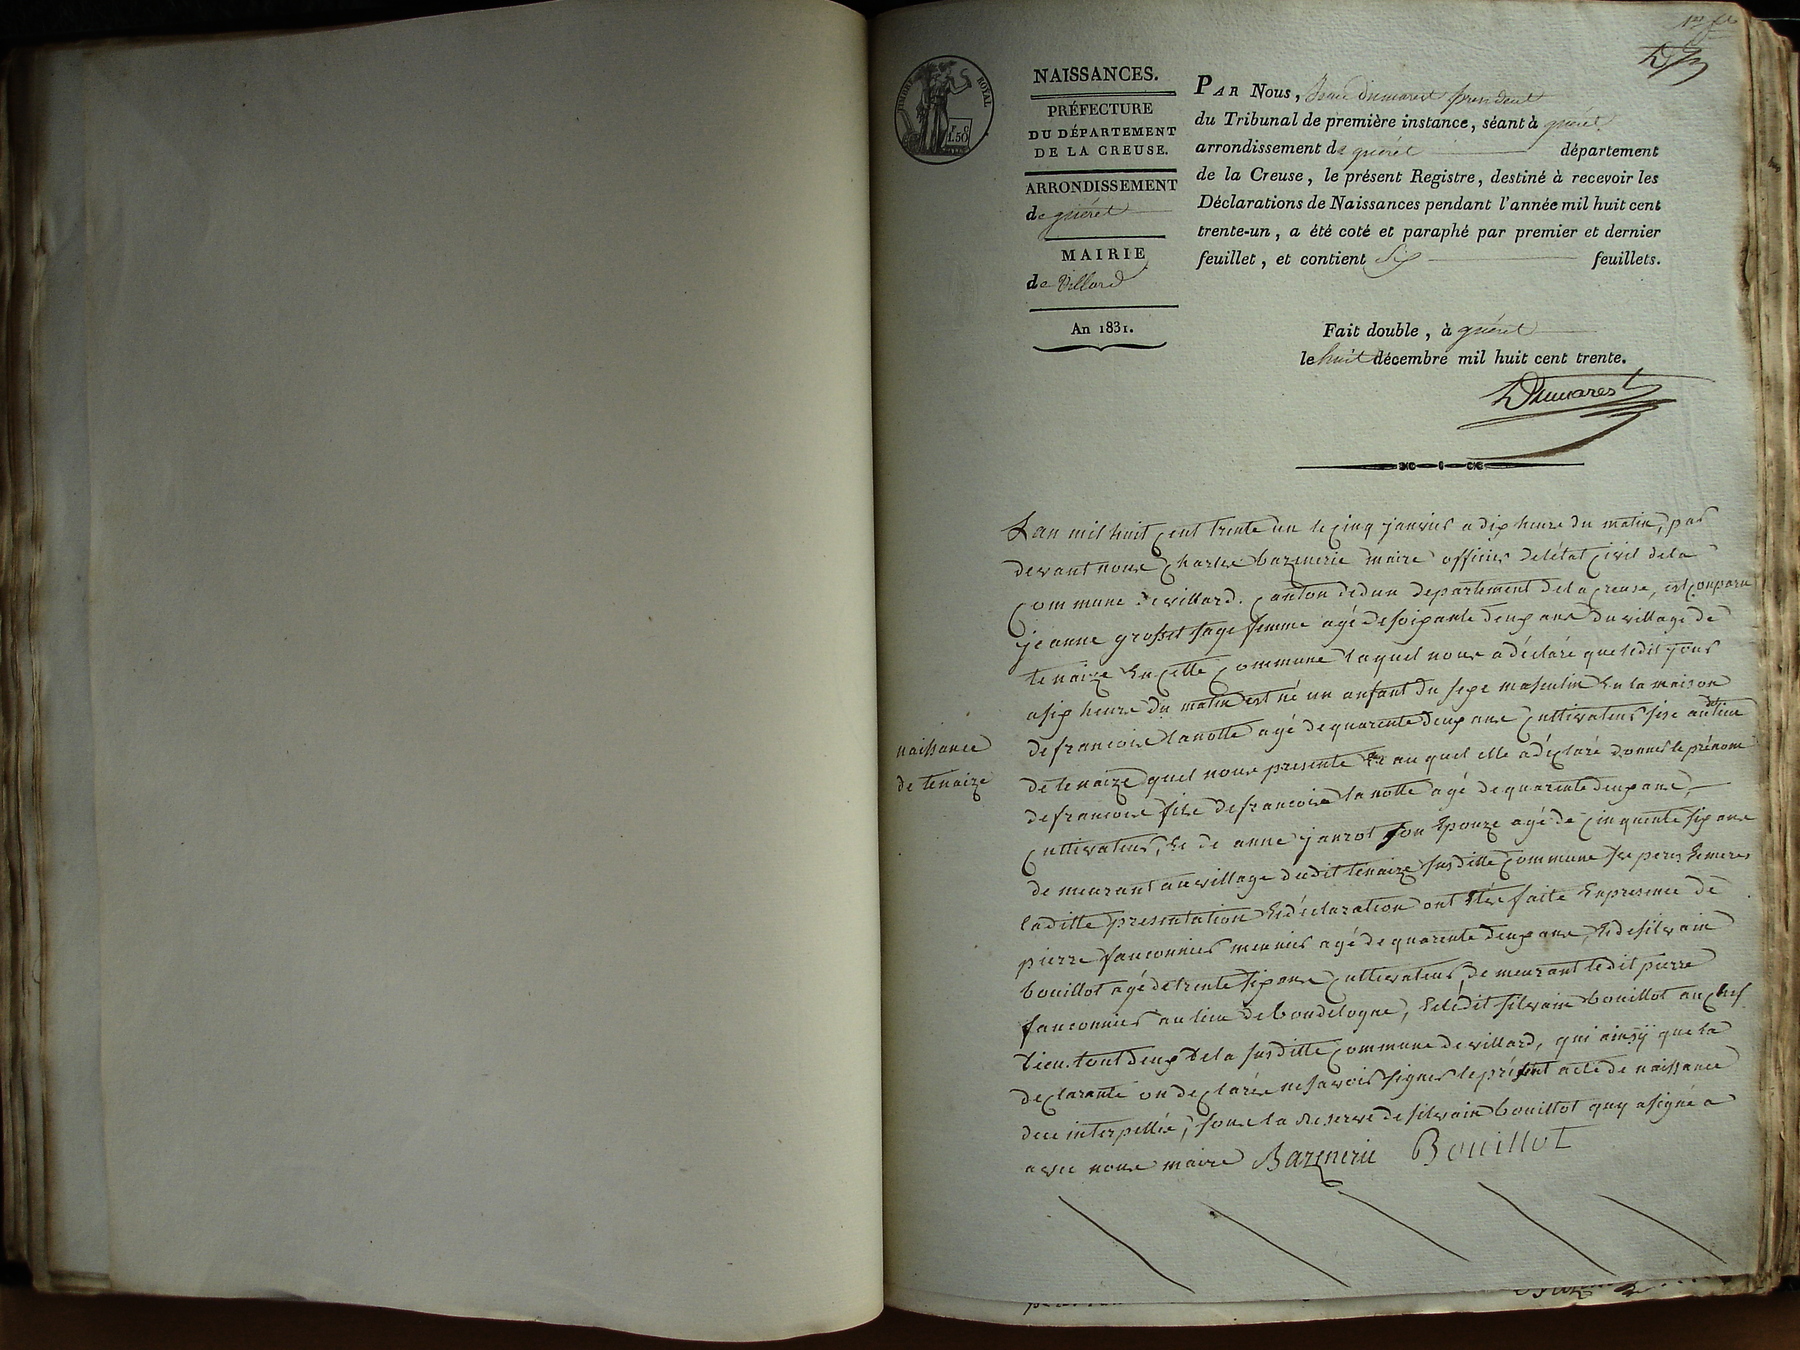 1er f.t
TIMBRE ROYAL
1.50
NAISSANCES.
PRÉFECTURE
DU DÉPARTEMENT
DE LA CREUSE.
ARRONDISSEMENT
de guéret
MAIRIE
de Villard
An 1831.
PAR Nous, dumarest president
du Tribunal de première instance, séant à guéret
arrondissement de guéret département
de la Creuse, le présent Registre, destiné à recevoir les
Déclarations de Naissances pendant l'année mil huit cent
trente-un, a été coté et paraphé par premier et dernier
feuillet, et contient Six feuillets.
Fait double, à guéret
le huit décembre mil huit cent trente.
Dumarest
Lan mil huit cent trente un le cinq janvier a dix heure du matin, par
devant nous Charles bazenerie maire officier deletat Civil dela
Commune de villard. Canton dedun departement dela Creuse, est Conparu
jeanne grosset sage femme agé desoixante deux ans du village de
tenaize En Cette Commune laquel nous a déclaré queledit jour
asix heure du matin est né un anfant du sexe masculin En la maison
defrancois lanotte agé dequarente deux ans Cultivateur size audit lieu
de tenaize quel nous presente Et au quel elle adéClaré donner le prénom
defrancois fils defrancois lanotte agé de quarente deux ans,
Cultivateur, Et de anne janrot son Epouze agé de Cinquente six ans
demeurant au village dudit tenaize susditte Commune ses peres Etmeres
laditte presentation Etdéclaration ont Etés faite Enpresence de
pierre fauconnier meunier agé de quarente deux ans, Etdesilvain
bouillot agé detrente six ans Cultivateur, demeurant ledit pierre
fauconnier au lieu deboudelogne, Etledit silvain bouillot au Chef
lieu. tout deux dela susditte Commune devillard, qui ainsÿ que la
deClarante on deClarés nesavoir signer leprésent acte de naissance
dece interpellés, sous la Reserve desilvain bouillot quy asigné a
avec nous maire Bazenerie Bouillot
naissance
de tenaize